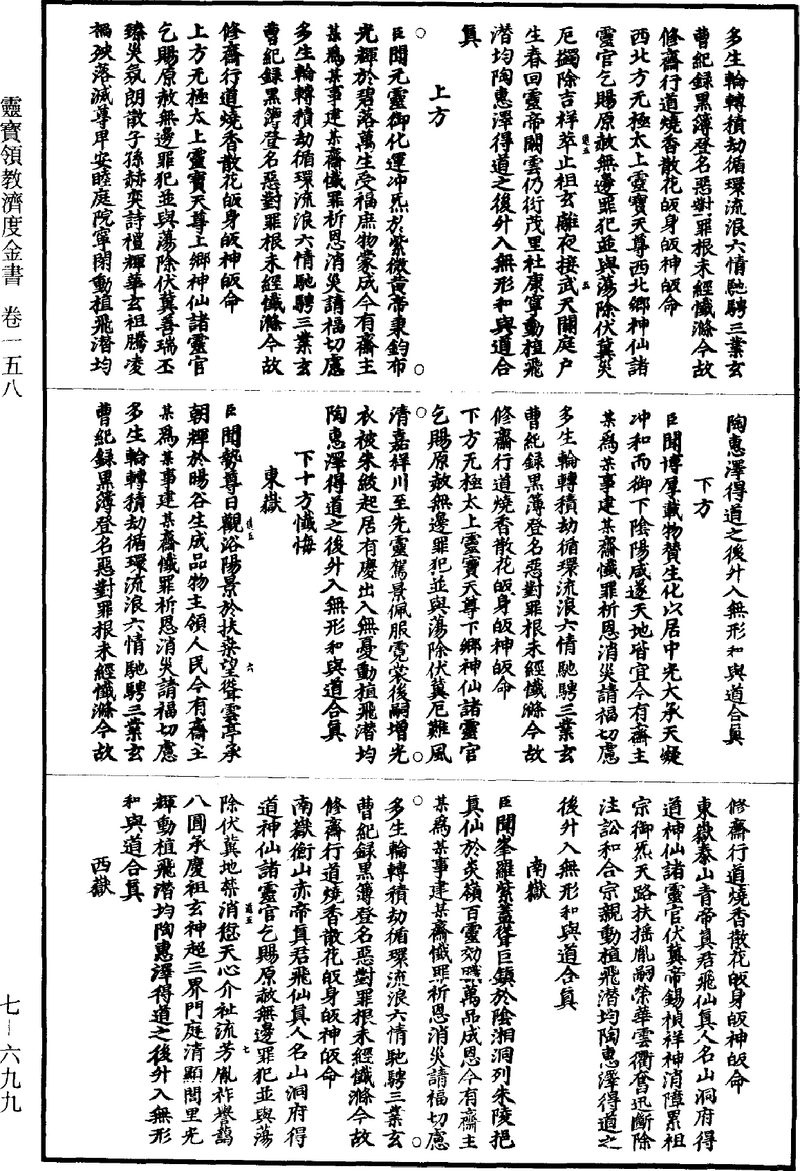 靈寶領教濟度金書　卷一五八
七—六九九
多生輪轉積劫循環流浪六情馳騁三業玄
曹紀録黑簿登名惡對罪根未經懺滌今故
修齋行道燒香散花皈身皈神皈命
西北方无極太上靈寶天尊西北鄉神仙諸
靈官乞賜原赦無邊罪犯並與蕩除伏冀災
厄蠲除吉祥萃止祖玄離夜接武天關庭户
生春回靈帝闕雲仍衍茂里社康寧動植飛
潛均陶惠澤得道之後外入無形和與道合
真
上方
臣聞元靈御化運冲炁於紫微黄帝秉鈞布
光輝於碧落萬生受福庶物蒙成今有齋主
某爲某事建某齋懺罪祈恩消災請福切慮
多生輪轉積劫循環流浪六情馳騁三業玄
曹紀録黑簿登名惡對罪根未經懺滌今故
修齋行道燒香散花皈身皈神皈命
上方无極太上靈寶天尊上鄉神仙諸靈官
乞賜原赦無邊罪犯並與蕩除伏冀善瑞丕
臻災氛朗散子孫赫奕詩禮輝華玄祖騰凌
禍殃落滅尊卑安睦庭院寧閑動植飛潛均
陶惠澤得道之後外入無形和與道合真
下方
臣聞博厚載物贊生化以居中光大承天凝
冲和而御下陰陽咸遂天地皆宜今有齋主
某爲某事建某齋懺罪祈恩消災請福切慮
多生輪轉積劫循環流浪六情馳騁三業玄
曹紀録黑簿登名惡對罪根未經懺滌今故
修齋行道燒香散花皈身皈神皈命
下方无極太上靈寶天尊下鄉神仙諸靈官
乞賜原赦無邊罪犯並與蕩除伏冀厄難風
清嘉祥川至先靈駕景佩服霓裳後嗣增光
衣被朱紱起居有慶出入無憂動植飛潛均
陶惠澤得道之後外入無形和與道合真
下十方懺悔
東嶽
臣聞勢尊日觀浴陽景於扶桑望聳雲亭承
朝輝於暘谷生成品物主領人民今有齋主
某爲某事建某齋懺罪祈恩消災請福切慮
多生輪轉積劫循環流浪六情馳騁三業玄
曹紀録黑簿登名惡對罪根未經懺滌今故
修齋行道燒香散花皈身皈神皈命
東嶽泰山青帝真君飛仙真人名山洞府得
道神仙諸靈官伏冀帝錫禎祥神消障累祖
宗御炁天路扶摇胤嗣榮華雲衢奮迅斷除
注訟和合宗親動植飛潛均陶惠澤得道之
後外入無形和與道合真
南嶽
臣聞峯羅紫蓋聳巨鎮於陰湘洞列朱陵挹
真仙於炎嶺百靈効職萬品咸恩今有齋主
某爲某事建某齋懺罪祈恩消災請福切慮
多生輪轉積劫循環流浪六情馳騁三業玄
曹紀録黑簿登名惡對罪根未經懺滌今故
修齋行道燒香散花皈身皈神皈命
南嶽衡山赤帝真君飛仙真人名山洞府得
道神仙諸靈官乞賜原赦無邊罪犯並與蕩
除伏冀地禁消愆天心介祉流芳胤祚譽藹
八圓承慶祖玄神超三界門庭清顯閭里光
輝動植飛潛均陶惠澤得道之後外入無形
和與道合真
西嶽